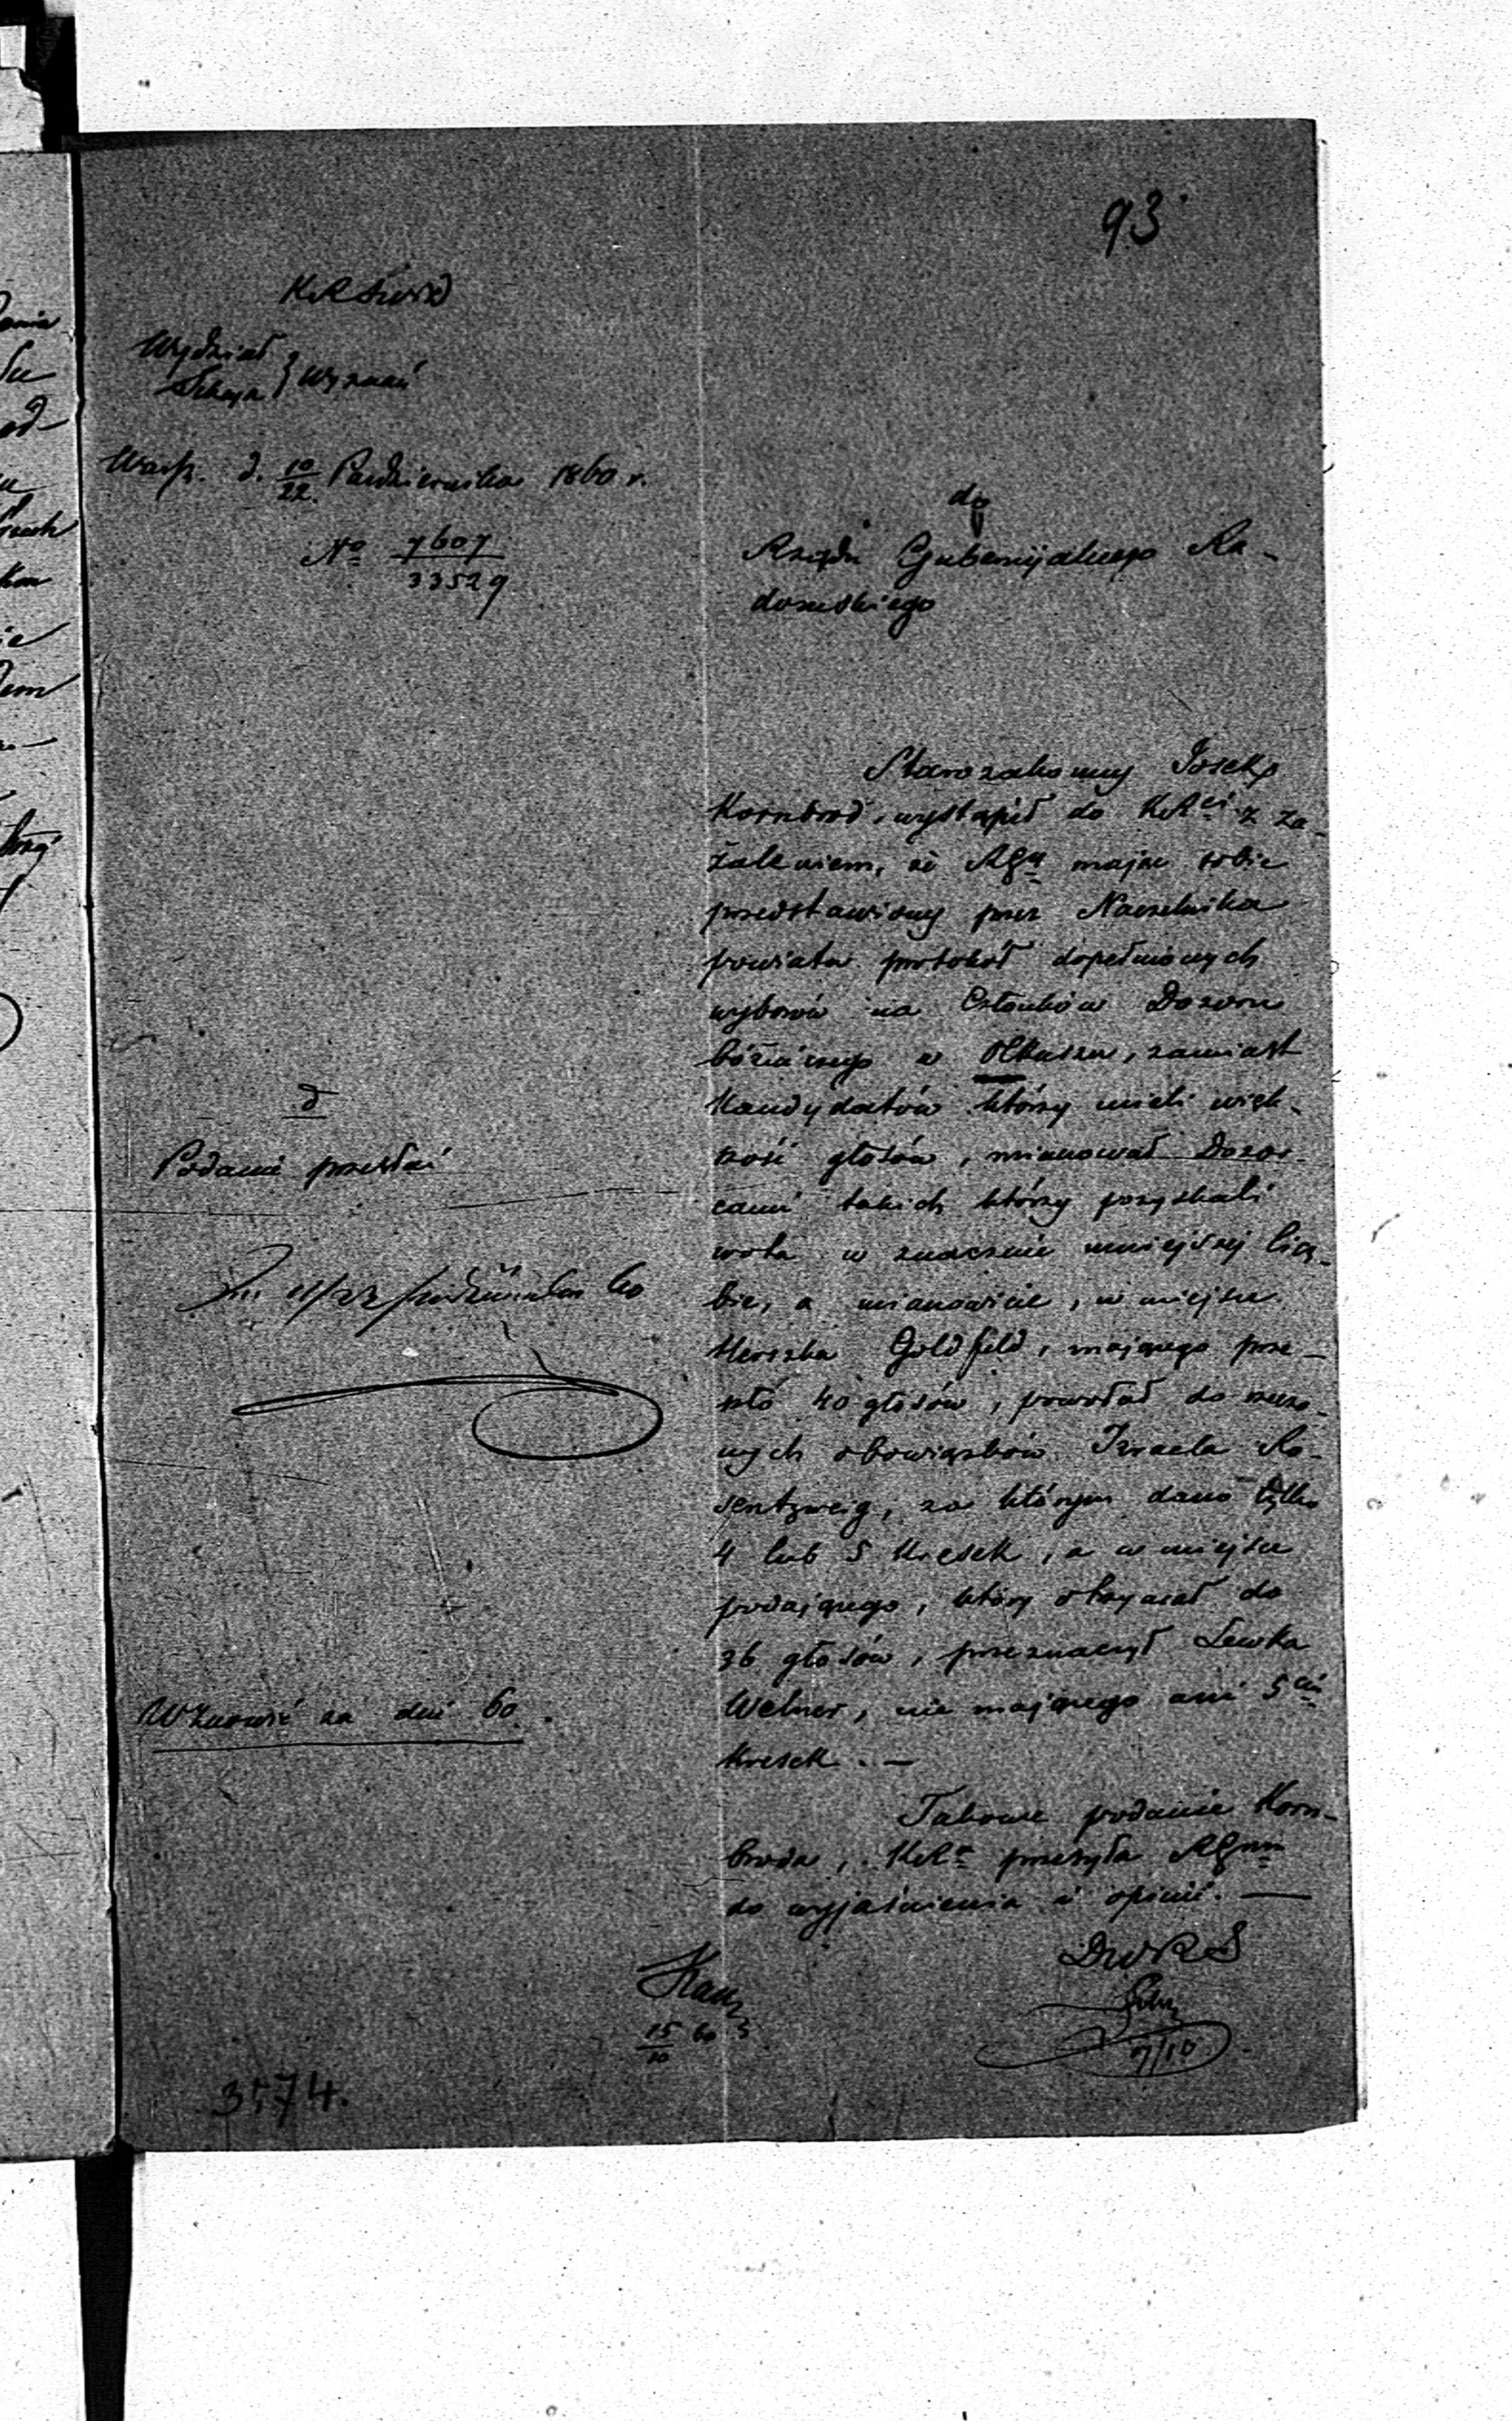 93
KRSWiD
Wydział
Sekcja } Wyznań
Warsz. d. 10/22 Października 1860 r.
No 7607/33529
do
Rządu Gubernijalnego Ra-
domskiego
Starozakonny Josek
Kornbrod, wystąpił do KRci z za-
żaleniem, że RGn mając sobie
przedstawiony przez Naczelnika
powiatu protokół dopełnionych
wyborów na Członków Dozoru
bóżniczego w Olkuszu, zamiast
Kandydatów którzy mieli więk-
szość głosów, mianował Dozor-
cami takich którzy pozyskali
wota w znacznie mniejszej licz-
bie, a mianowicie, w miejsce
Herszka Goldfeld, mającego prze-
szło 40 głosów, powołał do rzeczo-
nych obowiązków Izraela Ro-
sentzweig, za którym dano tylko
4 lub 5 Kresek, a w miejsce
podającego, który otrzymał do
36 głosów, przeznaczył Lewka
Welner, nie mającego ani 5ciu
Kresek. —
Takowe podanie Korn-
broda, KRa przesyła RGmu
do wyjaśnienia i opinii. —
DWRS
7/10
d
Podanie przesłać
11/23 Października 60
Wznowić za dni 60.
15/10 60
3574.